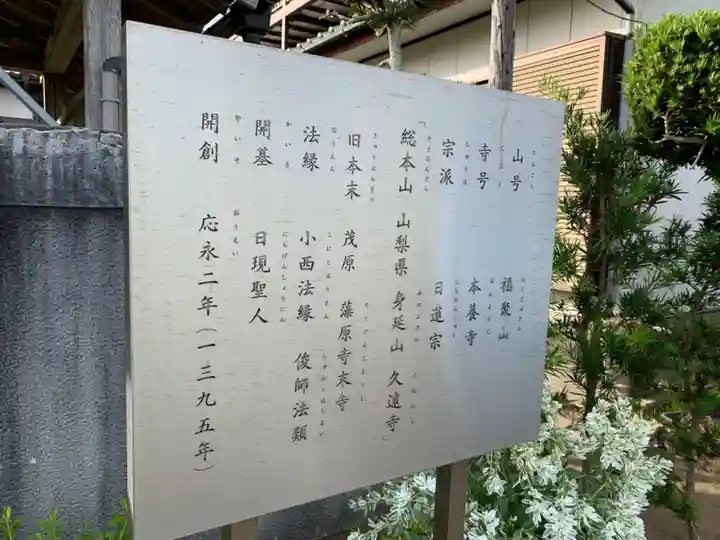 山号 福聚山
寺号 本養寺
宗派 日蓮宗
「総本山 山梨県 身延山 久遠寺」
旧本末 茂原 藻原寺末寺
法縁 小西法縁 俊師法類
開基 日現聖人
開創 応永二年(一三九五年)